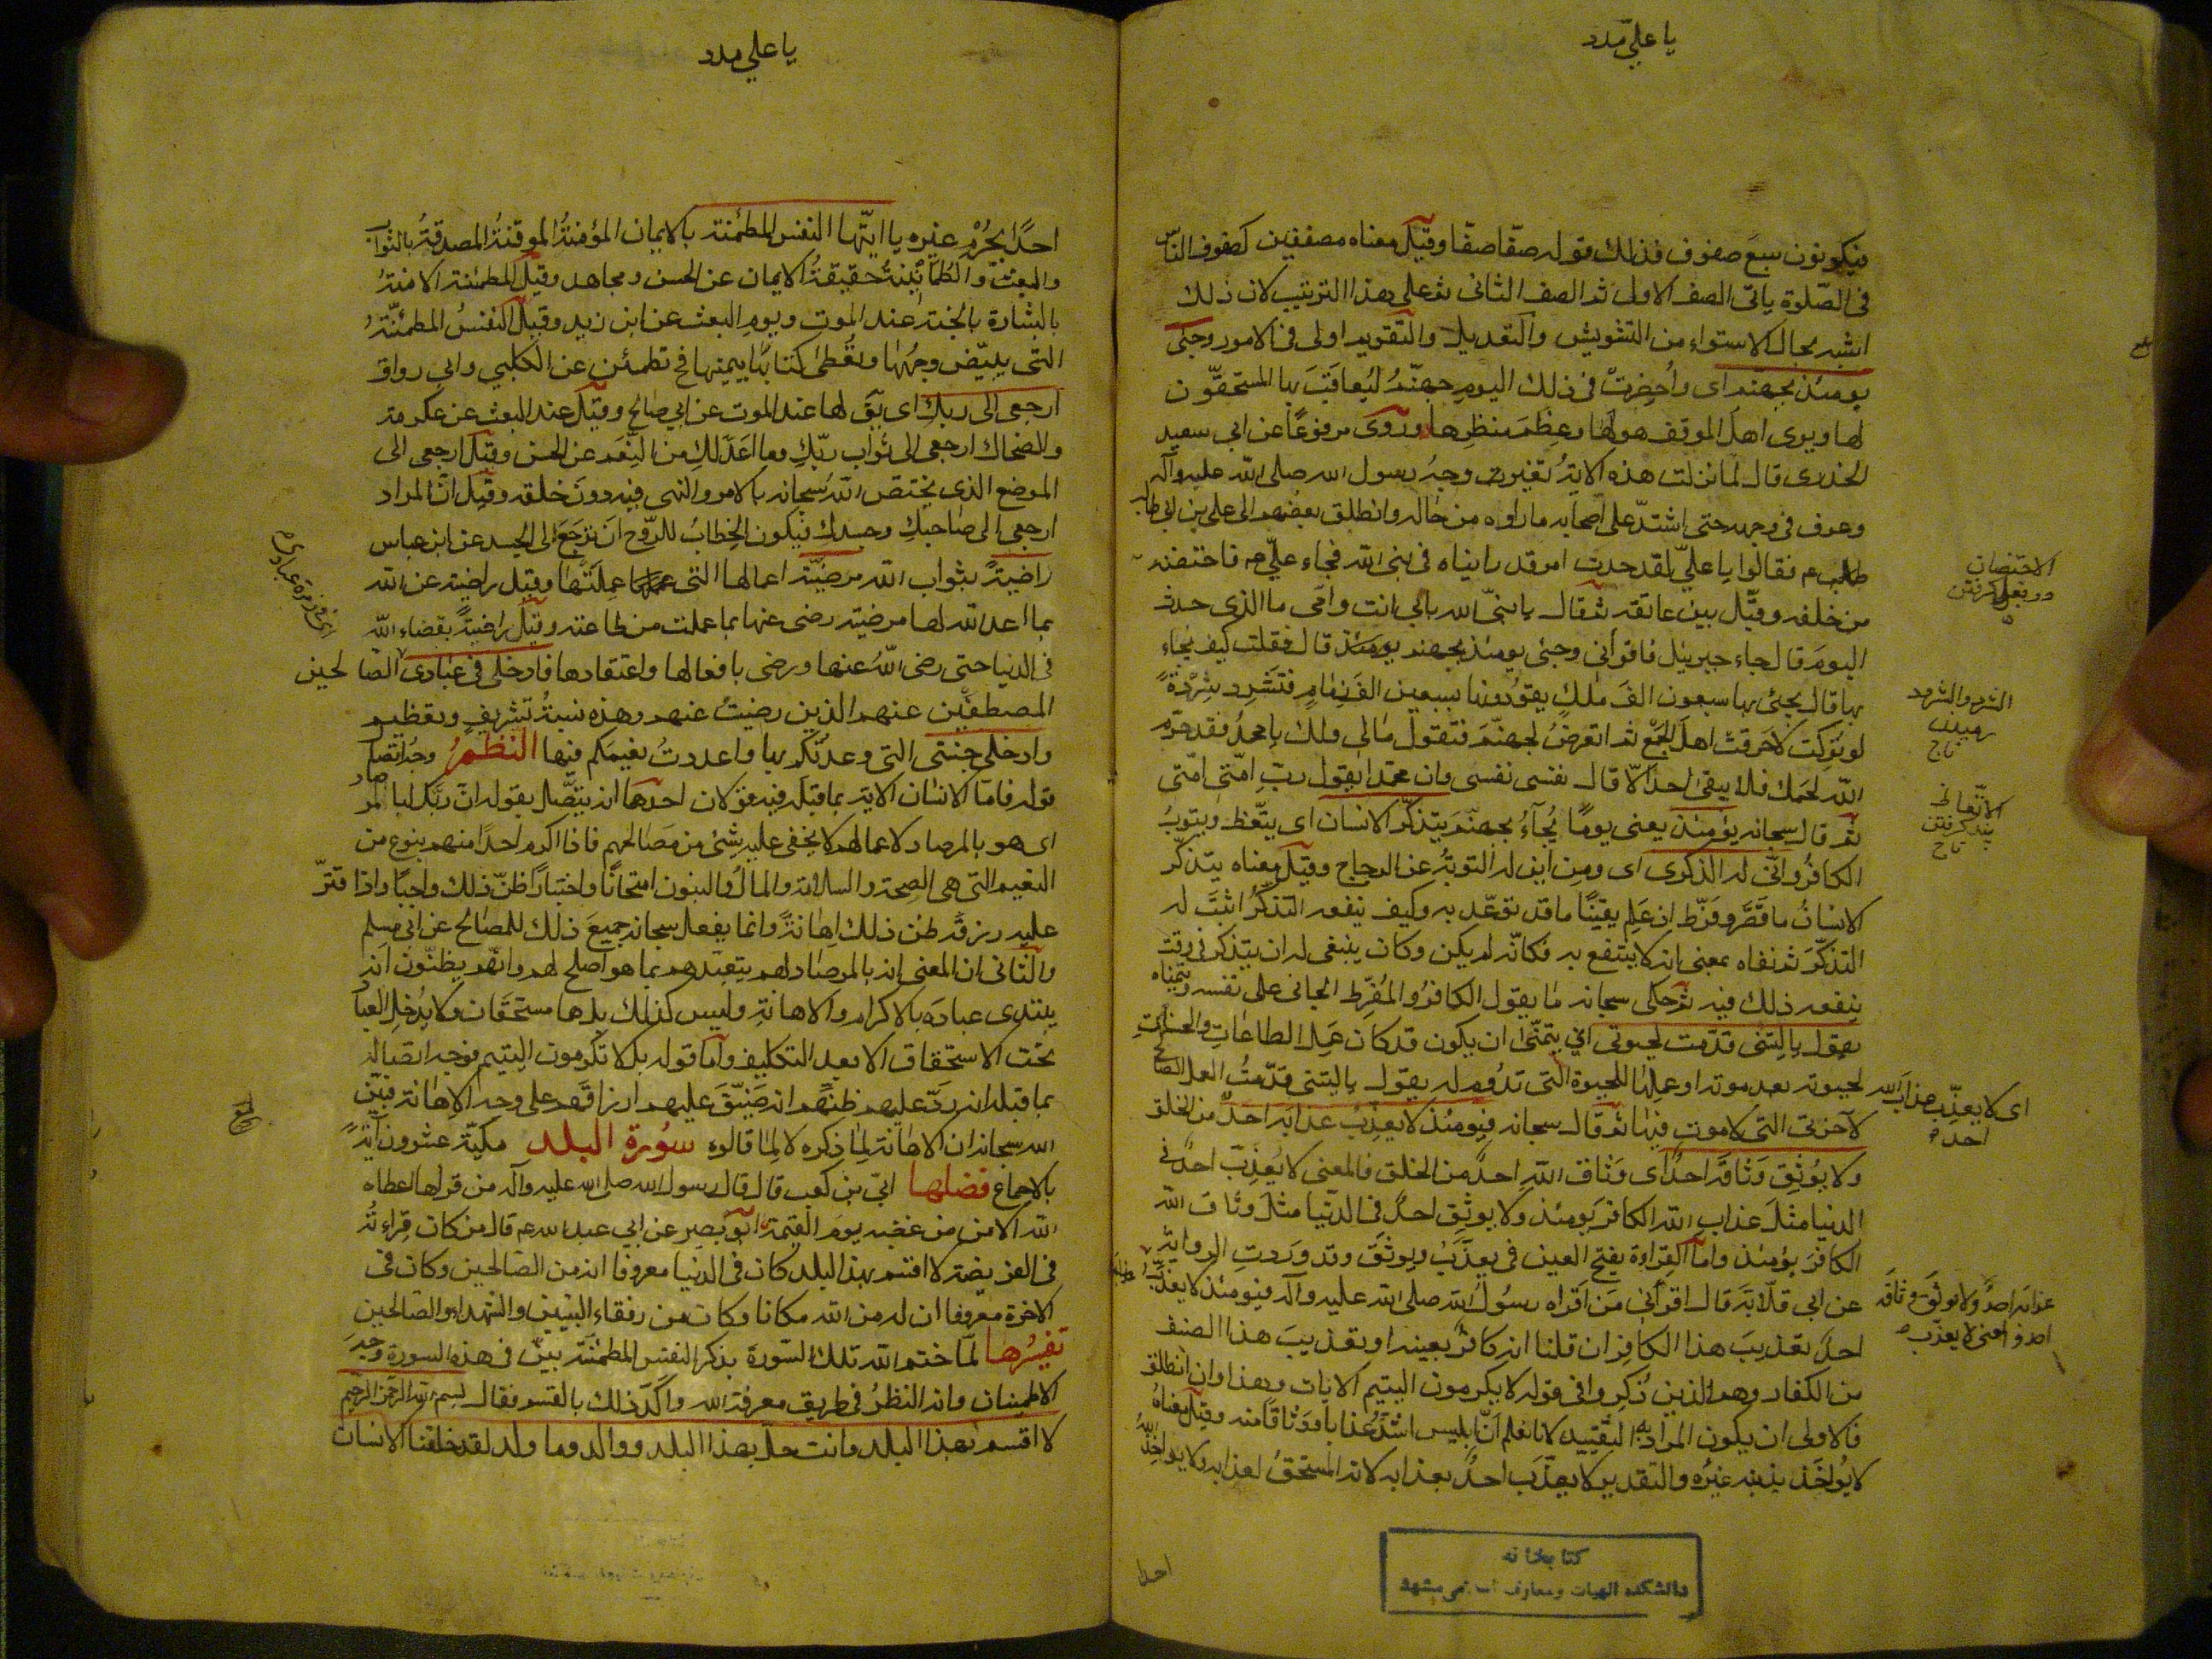 يا علي مدد
فيكونون سبع صفوف فذلك قوله صفّا صفّا وقيل معناه مصففين كصفوف الناس
فى الصّلوة ياتى الصف الاول ثم الصف الثانى ثم على هذا الترتيب لان ذلك
اشبه بحال الاستواء من التشويش والتعديل والتقويم اولى فى الامور وجئ
يومئذ بجهنم اى واُحضِرتْ فى ذلك اليوم جهنّمُ ليُعاقَبَ بها المستحقّون
لها ويرى اهل الموقف هولها وعِظَمَ منظرها وروى مرفوعًا عن ابى سعيد
الخدرى قال لما نزلت هذه الاية تغيّر وجهُ رسول الله صلى الله عليه وآله
وعرف فى وجهه حتى اشتدّ على اصحابه ما راوه من حاله وانطلق بعضهم الى على بن ابى طالب
فقالوا يا علىّ لقد حدث امر قد رايناه فى نبى الله فجاء علىّ عم فاحتضنه
من خلفه وقبّل بين عاتقه ثم قال يا نبىّ الله بابى انت وامّى ما الذى حدث
اليوم قال جاء جبرئيل فاقرأنى وجئ يومئذ بجهنم قال فقلت كيف يُجاء
بها قال يجئى بها سبعون الفَ ملكٍ يقودونها بسبعين الفَ زمامٍ فتشرد شردةً
لو تُرِكت لاَحرقتْ اهلَ الجمْع ثم اتعرضُ لجهنّمَ فتقول مالى ولك يا محمدُ فقد حرّم
الله لحمك فلا يبقى احد الّا قال نفسى نفسى وان محمّدا يقول ربّ امّتى امّتى
ثم قال سبحانه يومئذ يعنى يومًا يُجآءُ بجهنّمَ يتذكّر الانسان اى يتّعظ ويتوبُ
الكافرُ وانّى له الذكرى اى ومِن اين له التوبةُ عن الزجاج وقيل معناه يتذكّر
الانسانُ ما قَصَّر وفرّط اِن عَلِم يقينًا ما قد توعّد به وكيف ينفعه التذكّرُ اثبتَ له
التذكّرَ ثم نفاه بمعنى انه لا ينتفع به فكانّه لم يكن وكان ينبغى له ان يتذكر فى وقت
ينفعه ذلك فيه ثم حكى سبحانه ما يقول الكافرُ والمُفَرِّط الجانى على نفسه ويتمنّاه
يقول يا ليتنى قدّمت لحيوتى اى يتمنّى ان يكون قد كان عَمِل الطاعات والحسنات
لحيوته بعد موته او عملها للحيوة التى تدُوم له يقول يا ليتنى قدّمتُ العمل الصالح
لآخرتى التى لا موت فيها ثم قال سبحانه فيومئذ لا يعذّب عذابه احد من الخلق
ولا يُوثِق وَثَاقَه احد اى وَثاق اللهِ احدٌ من الخلق فالمعنى لا يُعذّبُ احدٌ فى
الدنيا مثْلَ عذابِ الله الكافرَ يومئذ ولا يوثِق احدٌ فى الدنيا مثلَ وثاق الله
الكافرَ يومئذ واما القراءة بفتح العين فى يعذَّبُ ويوثَق وقد وردت الرواية
عن ابى قلابَة قال اقرأنى مَن اقراه رسولُ الله صلى الله عليه وآله فيومئذ لا يعذَّب
احدٌ تعذيبَ هذا الكافرِ ان قلنا انه كافرٌ بعينه او تعذيبَ هذا الصنف
من الكفار وهم الذين ذُكِروا فى قوله لا يكرمون اليتيم الايات وهذا وان انطلق
فالاولى ان يكون المراد به التقييد لانا نعلم انّ ابليس اشدّ عذابا ووَثاقًا منه وقيل معناه
لا يُواخَذ بذنبه غيرُه والتقدير لا يعذَّب احدٌ بعذابه لانه المستحقّ لعذابه ولا يواخِذ الله
الاحتضان
در بغل گرفتن
الشرد والشرود
رميدن
تاج
الاتّعاظ
پند گرفتن
تاج
اى لا يعذِّب عذابَ الله
احد
عذابَه احدٌ ولا يوثَق وثاقَه
احدٌ والمعنى لا يعذّب
احدا
كتابخانه
دانشكده الهيات ومعارف اسلامى مشهد
يا علي مدد
احدًا بجُرْمِ غيره يا ايتّها النفس المطمئنة بالايمان المؤمنةُ الموقنةُ المصدقةُ بالثواب
والبعث والطمانينةُ حقيقةُ الايمان عن الحسن ومجاهد وقيل المطمئنة الامنةُ
بالبشارة بالجنة عند الموت ويوم البعث عن ابن زيد وقيل النفسُ المطمئنّةُ
التى يبيّض وجهُها ويُعطى كتابُها بيمينها فح تطمئن عن الكلبي وابى رواق
ارجعى الى ربك اى يقَ لها عند الموت عن ابى صالح وقيل عند البعث عن عكرمة
والضحاك ارجعى الى ثواب ربّكِ وما اَعدّ لكِ من النِّعَم عن الحسن وقيل ارجعى الى
الموضع الذى يختصّ اللهُ سبحانه بالامر والنهى فيه دونَ خلقه وقيل انّ المراد
ارجعى الى صاحبكِ وجسدك فيكون الخطابُ للرّوح ان ترجَعَ الى الجسد عن ابن عباس
راضيةً بثواب الله مرضيّة اعمالها التى عملتها وقيل راضية عن الله
بما اعد الله لها مرضية رضى عنها بما عملت من طاعته وقيل راضيةً بقضاء الله
فى الدنيا حتى رضى اللهُ عنها ورضى بافعالها واعتقادها فادخلى فى عبادى الصالحين
المصطفَيْن عنهم الذين رضيتُ عنهم وهذه نسبةُ تشريفٍ وتعظيم
وادخلى جنتى التى وعدتُكم بها واعددتُ نعيمكم فيها النظمُ وجهُ اتّصال
قوله فامّا الانسان الاية بما قبله فيه قولان احدها انه يتصّل بقوله انّ ربّك لبالمرصاد
اى هو بالمرصاد لاعمالهم لا يخفى عليه شئ من مصالحهم فاذا اكرم احدًا منهم بنوع من
النعيم التى هى الصحة والسلامة والمالُ والبنون امتحانًا واختبارًا ظنّ ذلك واجبًا واذا قتّر
عليه رزقَه ظن ذلك اِهانةً وانما يفعل سبحانه جميعَ ذلك للمصالح عن ابى مسلم
والثانى ان المعنى انه بالمرصاد لهم يتعبّدهم بما هو اصلح لهم وانّهم يظنّون انه
يبتدى عبادَه بالاكرام والاهانةِ وليس كذلك بل هما مستحقّان ولا يُدخل العباد
تحت الاستحقاق الا بعد التكليف وامّا قوله بل لا تكرمون اليتيم فوجه اتصاله
بما قبله انه ردَّ عليهم ظنّهم انه ضيّق عليهم ارزاقَهم على وجه الاهانة فبيّن
الله سبحانه ان الاهانة لِما ذكره لا لِما قالوه سورة البلد مكيّة عشرون آيةً
بالاجماع فضلها ابىّ بن كعب قال قال رسول الله صلى الله عليه وآله من قراها اعطاه
الله الامن من غضبه يوم القيمة ابو بصير عن ابى عبد الله عم قال من كان قراءتُه
فى الفريضة لا اقسم بهذا البلد كان فى الدنيا معروفا انه من الصالحين وكان فى
الاخرة معروفا ان له من الله مكانا وكان من رفقاء النبيين والشهداء والصالحين
تفسيرها لمّا ختم الله تلك السّورة بذكر النفس المطمئنّة بيّن فى هذه السورة وجهَ
الاطمينان وانه النظرُ فى طريق معرفة الله واكّد ذلك بالقسم فقال بسم الله الرحمن الرحيم
لا اقسم بهذا البلد وانت حلّ بهذا البلد ووالد وما ولد لقد خلقنا الانسان